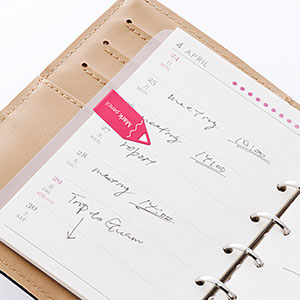 4 APRIL
24
25
Meeting 10:00
Mark pencil
meeting
27
report 14:00
28
meeting 14:00
29
30
Trip to Guam